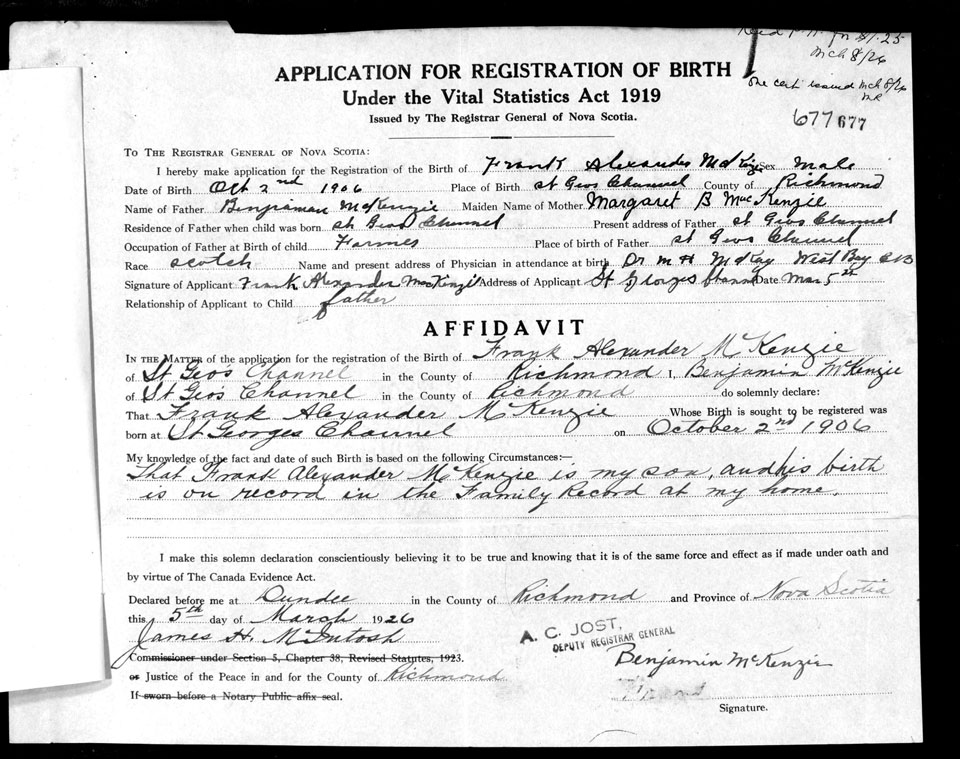 Mch 8/26
one cert issued Mch 8/26
MR
677 677
APPLICATION FOR REGISTRATION OF BIRTH
Under the Vital Statistics Act 1919
Issued by The Registrar General of Nova Scotia.
TO THE REGISTRAR GENERAL OF NOVA SCOTIA:
I hereby make application for the Registration of the Birth of Frank Alexander McKenzie Sex Male
Date of Birth Oct 2nd 1906 Place of Birth St Geos Channel County of Richmond
Name of Father Benjiaman McKenzie Maiden Name of Mother Margaret B MacKenzie
Residence of Father when child was born St Geos Channel Present address of Father St Geos Channel
Occupation of Father at Birth of child Farmer Place of birth of Father St Geos Channel
Race Scotch Name and present address of Physician in attendance at birth Dr M H McKay West Bay C B
Signature of Applicant Frank Alexander MacKenzie Address of Applicant St Georges Channel Date Mar 5th
Relationship of Applicant to Child father
AFFIDAVIT
IN THE MATTER of the application for the registration of the Birth of Frank Alexander McKenzie
of St Geo's Channel in the County of Richmond I, Benjamin McKenzie
of St Geo's Channel in the County of Richmond do solemnly declare:
That Frank Alexander McKenzie Whose Birth is sought to be registered was
born at St Georges Channel on October 2nd 1906
My knowledge of the fact and date of such Birth is based on the following Circumstances:—
That Frank Alexander McKenzie is my son, and his birth
is on record in the Family Record at my home.
I make this solemn declaration conscientiously believing it to be true and knowing that it is of the same force and effect as if made under oath and
by virtue of The Canada Evidence Act.
Declared before me at Dundee in the County of Richmond and Province of Nova Scotia
this 5th day of March 1926
James H. McIntosh
A. C. JOST,
DEPUTY REGISTRAR GENERAL
Commissioner under Section 5, Chapter 38, Revised Statutes, 1923.
Benjamin McKenzie
or Justice of the Peace in and for the County of Richmond
If sworn before a Notary Public affix seal.
Signature.